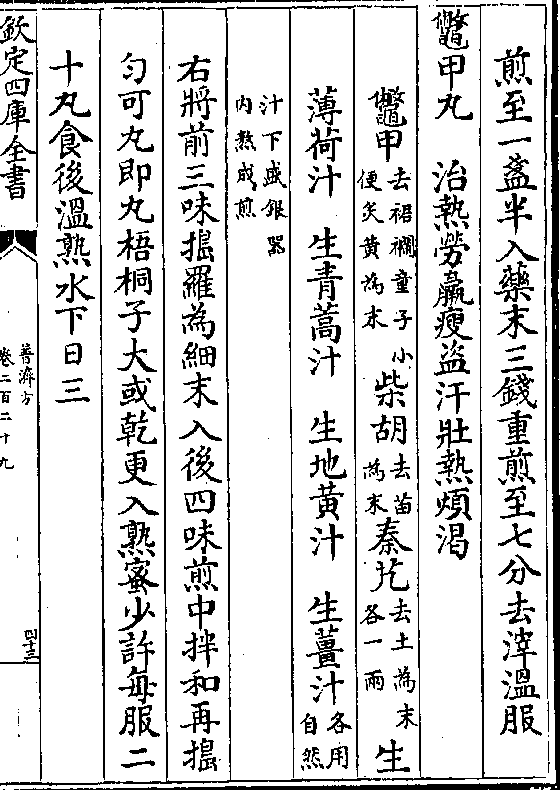 煎至一盞半入藥末三錢重煎至七分去滓溫服
鼈甲丸　治熱勞羸瘦盜汗壯熱煩渴
鼈甲去裙襴童子小便炙黃為末　柴胡去苗為末　秦艽去土為末各一兩　生
薄荷汁　生青蒿汁　生地黃汁　生薑汁各用自然
汁下盛銀器內熬成煎
右將前三味搗羅為細末入後四味煎中拌和再搗
勻可丸即丸梧桐子大或乾更入熟蜜少許每服二
十丸食後溫熟水下日三
欽定四庫全書
普濟方
卷二百二十九
四十三